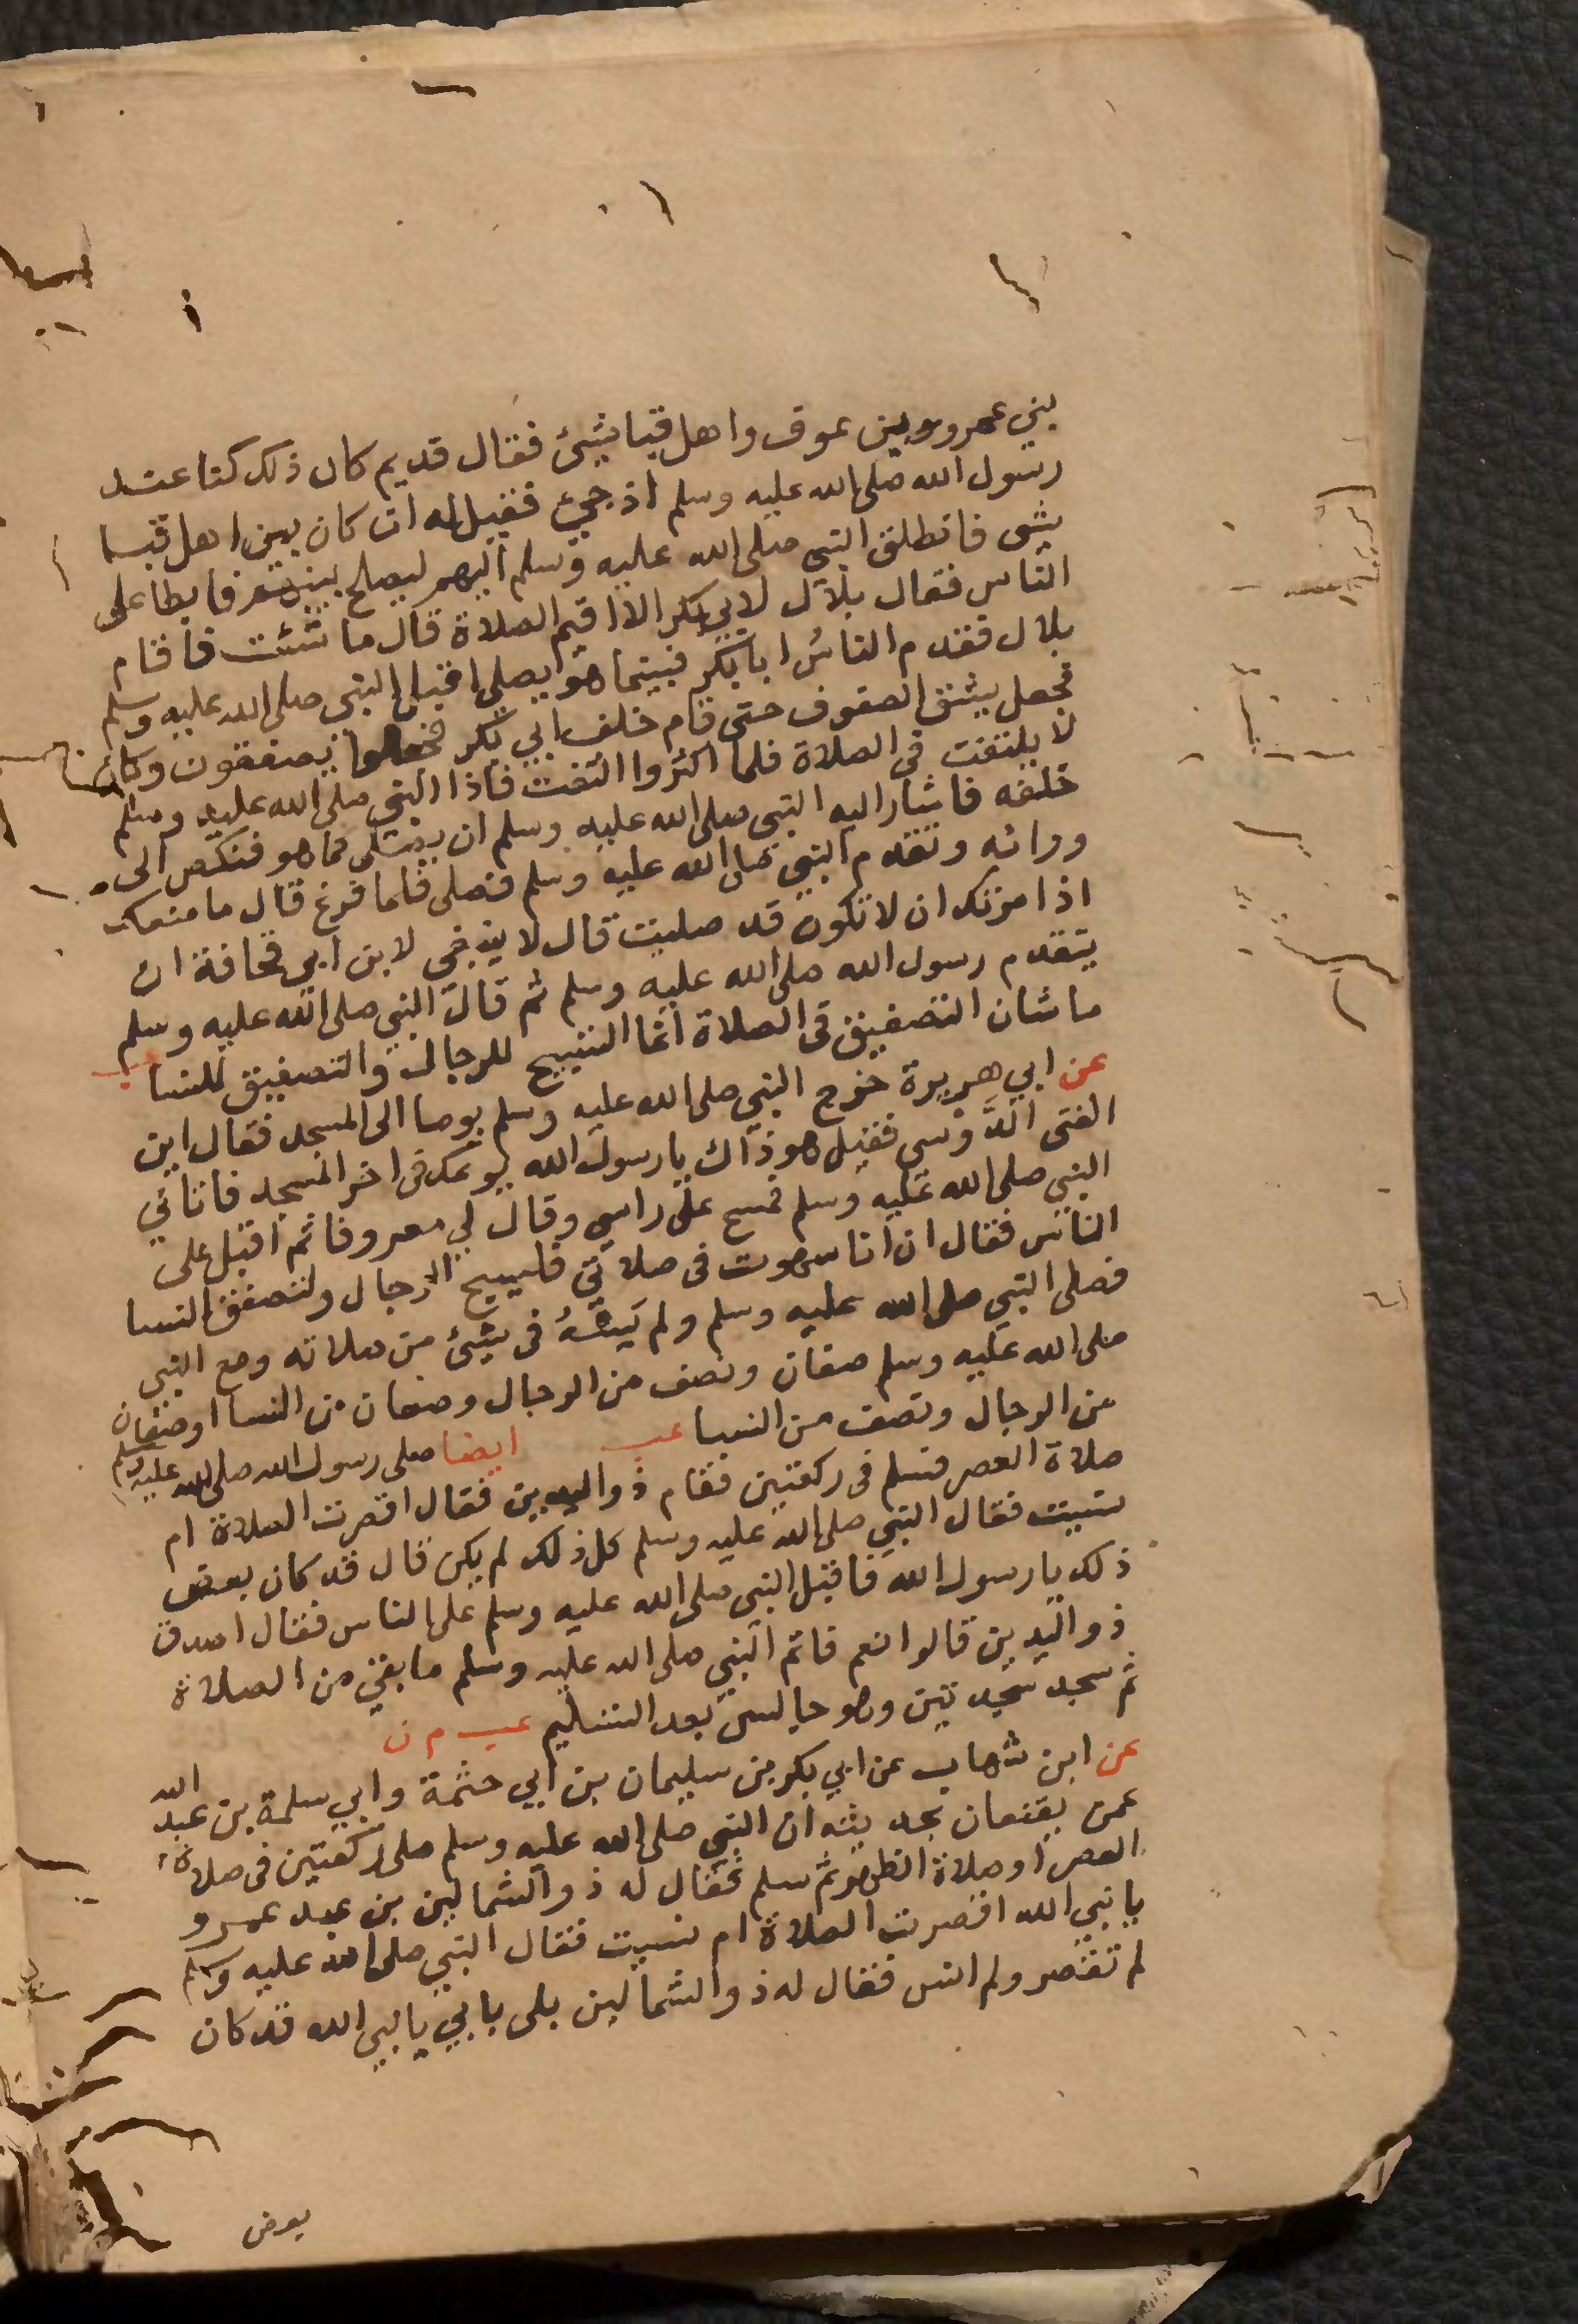 بني عمرو وبين عوف واهل قبا شيئ فقال قديم كان ذلك كنا عند
رسول الله صلى الله عليه وسلم اذ جيئ فقيل له ان كان بين اهل قبا
شي فانطلق النبي صلى الله عليه وسلم اليهم ليصلح بينهم فابطا على
الناس فقال بلال لابي بكر الا اقيم الصلاة قال ما شئت فاقام
بلال فقدم الناسُ ابا بكر فبينما هو يصلي اقبل النبي صلى الله عليه وسلم
فجعل يشق الصفوف حتى قام خلف ابي بكر فجعلوا يصفقون وكان
لا يلتفت في الصلاة فلما اكثروا التفت فاذا النبي صلى الله عليه وسلم
خلفه فاشار اليه النبي صلى الله عليه وسلم ان يصلي كما هو فنكص الى
ورائه وتقدم النبي صلى الله عليه وسلم فصلى فلما فرغ قال ما منعك
اذ امرتك ان لا تكون قد صليت قال لا ينبغي لابن ابي قحافة ان
يتقدم رسول الله صلى الله عليه وسلم ثم قال النبي صلى الله عليه وسلم
ما شان التصفيق في الصلاة انما التسبيح للرجال والتصفيق للنسا عب
عن ابي هريرة خرج النبي صلى الله عليه وسلم يوما الى المسجد فقال اين
الفتى الدَّوسي فقيل هو ذاك يا رسول الله يوعك في اخر المسجد فاتاني
النبي صلى الله عليه وسلم فمسح على راسي وقال لي معروفا ثم اقبل على
الناس فقال ان انا سهوت في صلاتي فليسبح الرجال ولتصفق النسا
فصلى النبي صلى الله عليه وسلم ولم يَسْهُ في شيئ من صلاته ومع النبي
صلى الله عليه وسلم صفان ونصف من الرجال وصفان من النسا او صفان
من الرجال ونصف من النسا عب ايضا صلى رسول الله صلى الله عليه وسلم
صلاة العصر فسلم في ركعتين فقام ذو اليدين فقال اقصرت الصلاة ام
نسيت فقال النبي صلى الله عليه وسلم كل ذلك لم يكن قال قد كان بعض
ذلك يا رسول الله فاقبل النبي صلى الله عليه وسلم على الناس فقال اصدق
ذو اليدين قالوا نعم فاتم النبي صلى الله عليه وسلم ما بقي من الصلاة
ثم سجد سجدتين وهو جالس بعد التسليم عب م ن
عن ابن شهاب عن ابي بكر بن سليمان بن ابي حثمة وابي سلمة بن عبد الله
عمن يقنعان بحديثه ان النبي صلى الله عليه وسلم صلى ركعتين في صلاة
العصر او صلاة الظهر ثم سلم فقال له ذو الشمالين بن عبد عمرو
يا نبي الله اقصرت الصلاة ام نسيت فقال النبي صلى الله عليه وسلم
لم تقصر ولم انس فقال له ذو الشمالين بلى بابي يا نبي الله قد كان
بعض